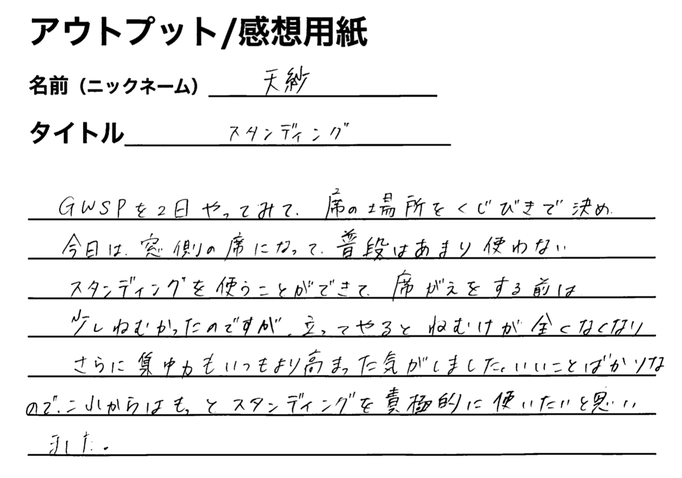 アウトプット/感想用紙
名前（ニックネーム） 天紗
タイトル スタンディング
GWSPを2日やってみて、席の場所をくじびきで決め
今日は、窓側の席になって、普段はあまり使わない
スタンディングを使うことができて、席がえをする前は
少しねむかったのですが、立ってやるとねむけが全くなくなり
さらに集中力もいつもより高まった気がしました。いいことばかりな
ので、これからはもっとスタンディングを責極的に使いたいと思い
ました。